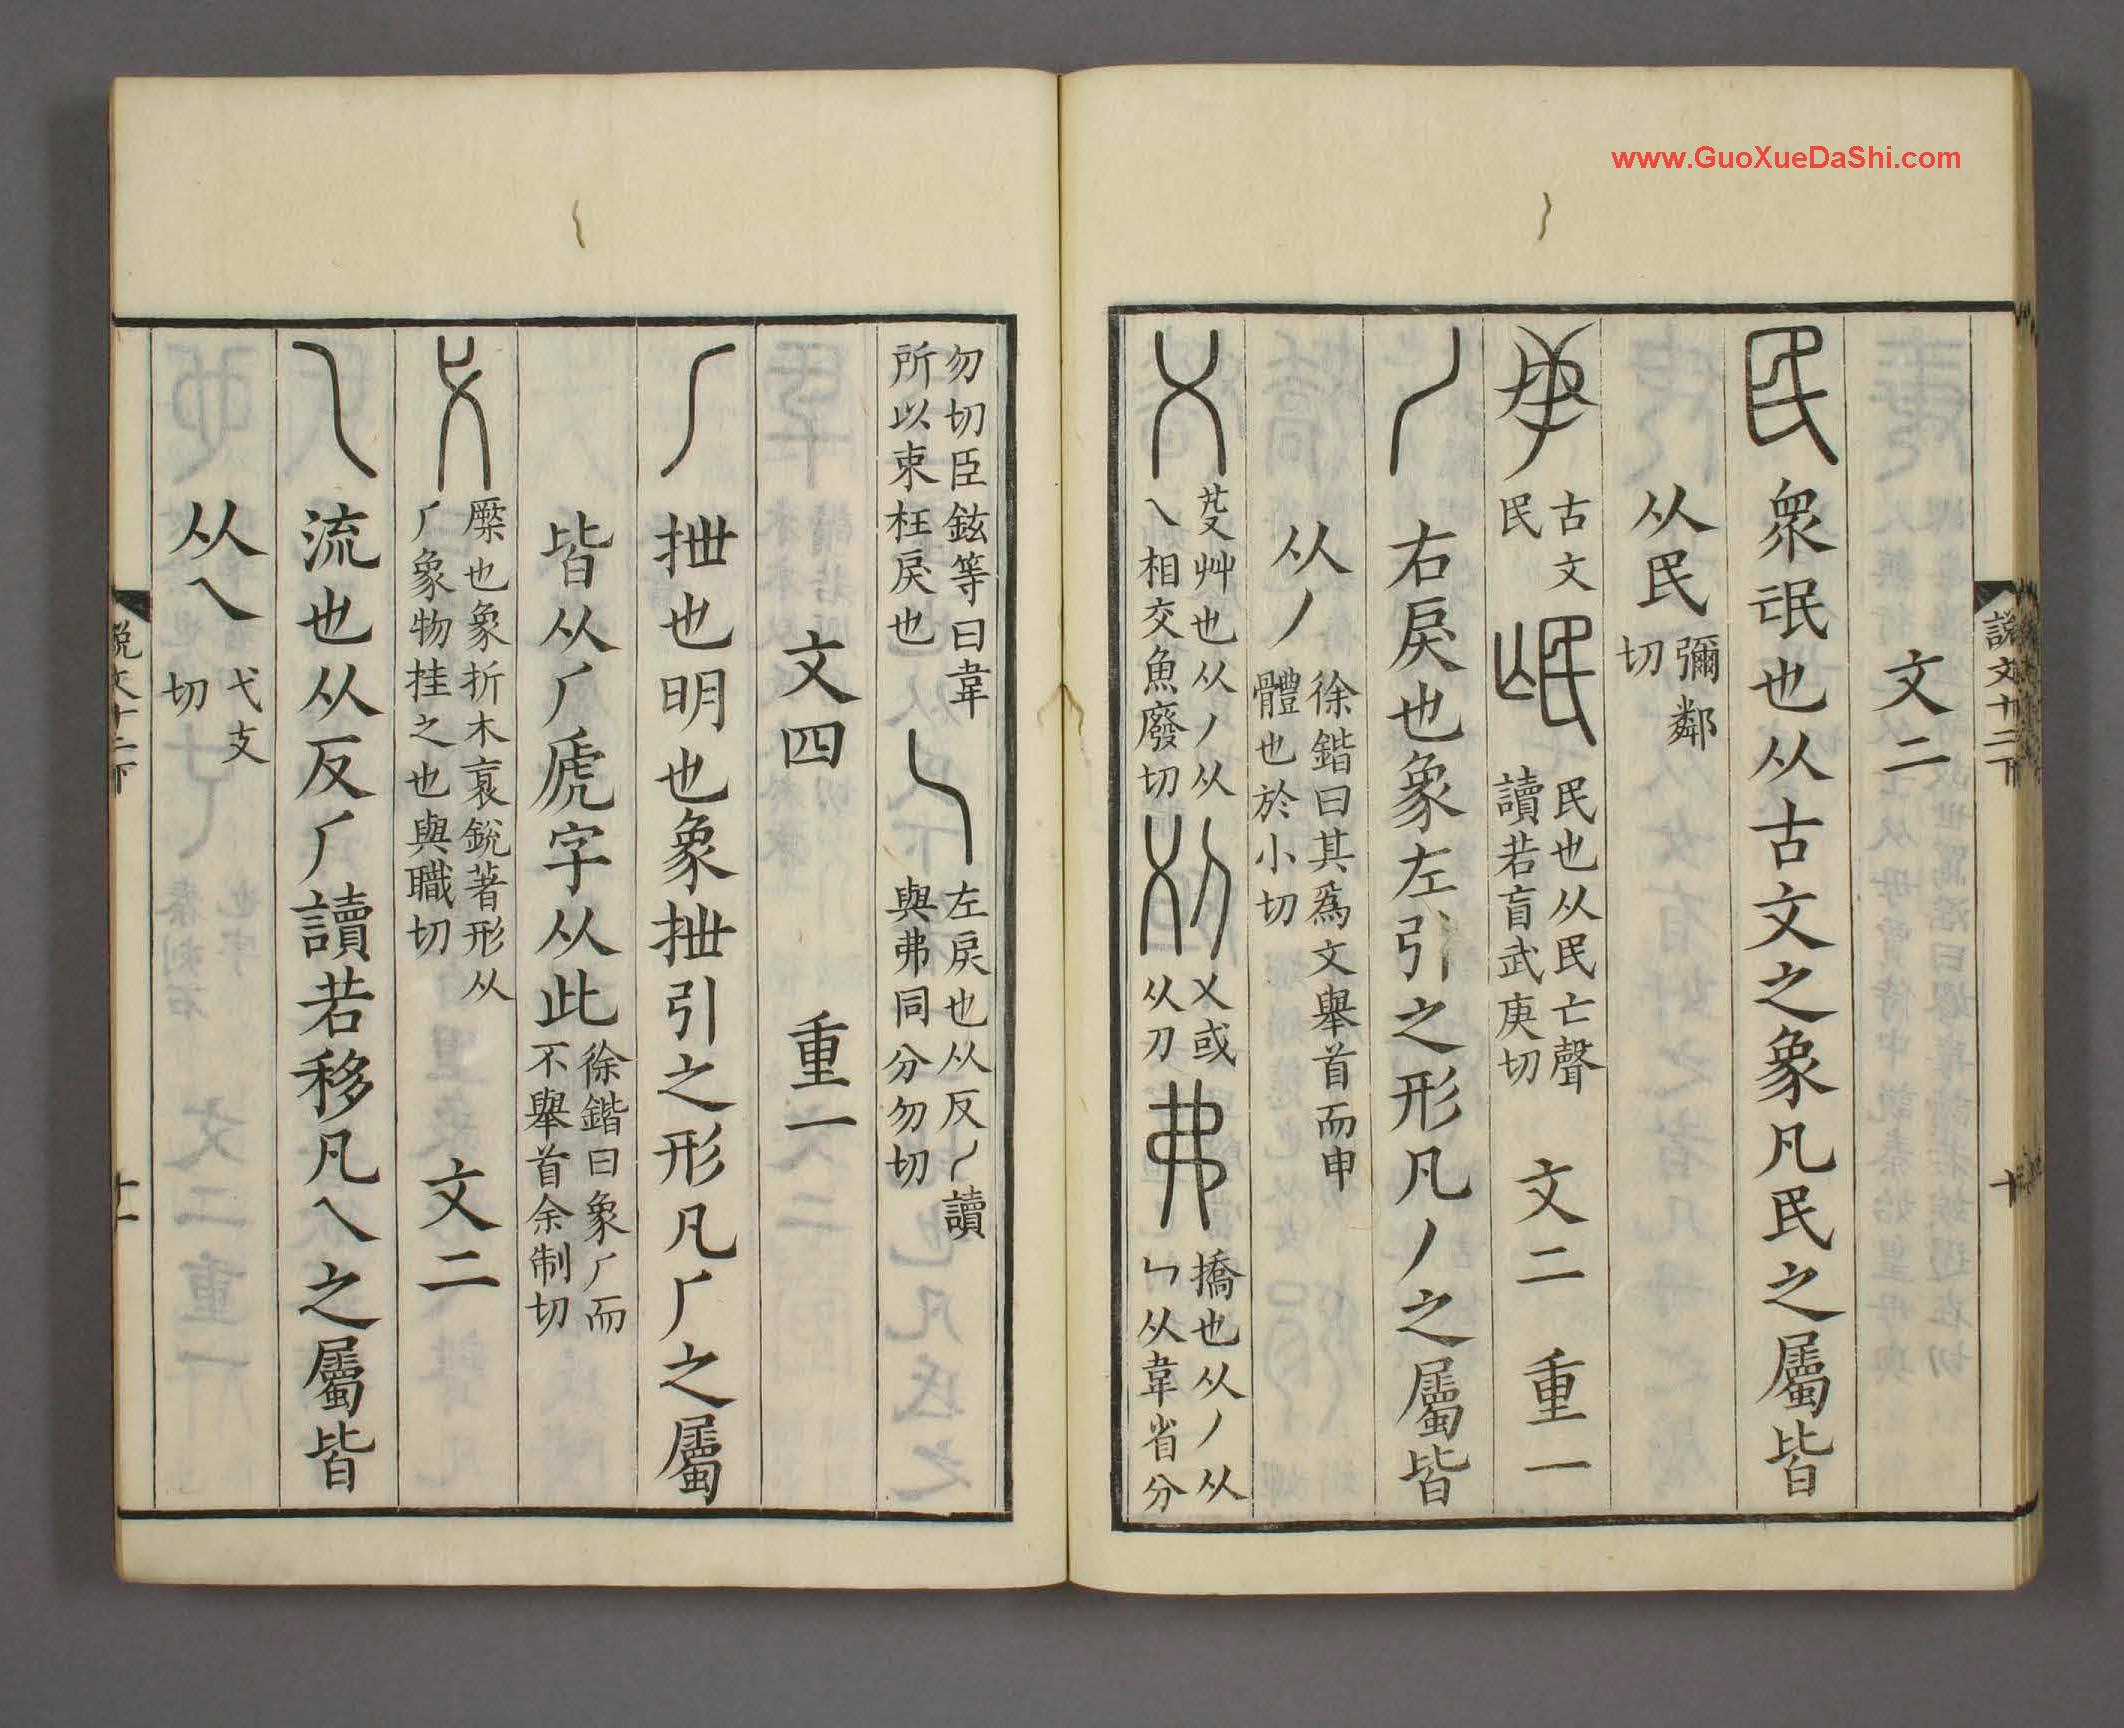 www.GuoXueDaShi.com
說文十二下
十
文二
民 衆氓也从古文之象凡民之屬皆
从民 彌鄰切
古文民 氓 民也从民亡聲讀若盲武庚切 文二 重一
丿 右戾也象左引之形凡丿之屬皆
从丿 徐鍇曰其爲文舉首而申體也於小切
乂 芟艸也从丿从乀相交魚廢切 刈 乂或从刀 弗 撟也从丿从乀从韋省分
勿切臣鉉等曰韋所以束枉戾也 乀 左戾也从反丿讀與弗同分勿切
文四 重一
𠂆 抴也明也象抴引之形凡𠂆之屬
皆从𠂆虒字从此 徐鍇曰象𠂆而不舉首余制切
弋 橜也象折木衺銳著形从𠂆象物挂之也與職切 文二
乁 流也从反𠂆讀若移凡乁之屬皆
从乁 弋支切
說文十二下
十一